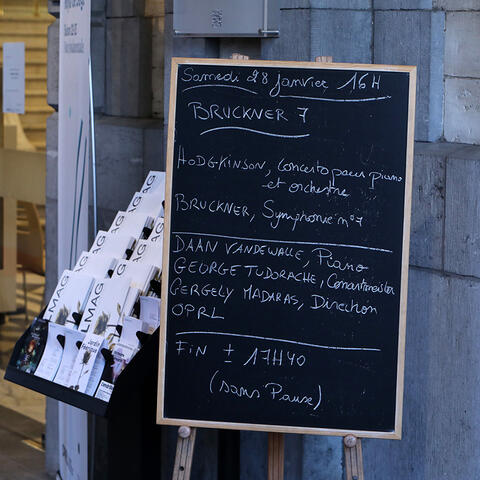 Samedi 28 Janvier 16H
BRUCKNER 7
HODGKINSON, Concerto pour piano
et orchestre
BRUCKNER, Symphonie n°7
DAAN VANDEWALLE, Piano
GEORGE TUDORACHE, Concertmeister
GERGELY MADARAS, Direction
OPRL
FIN ± 17H40
(sans Pause)
LMAG
LMAG